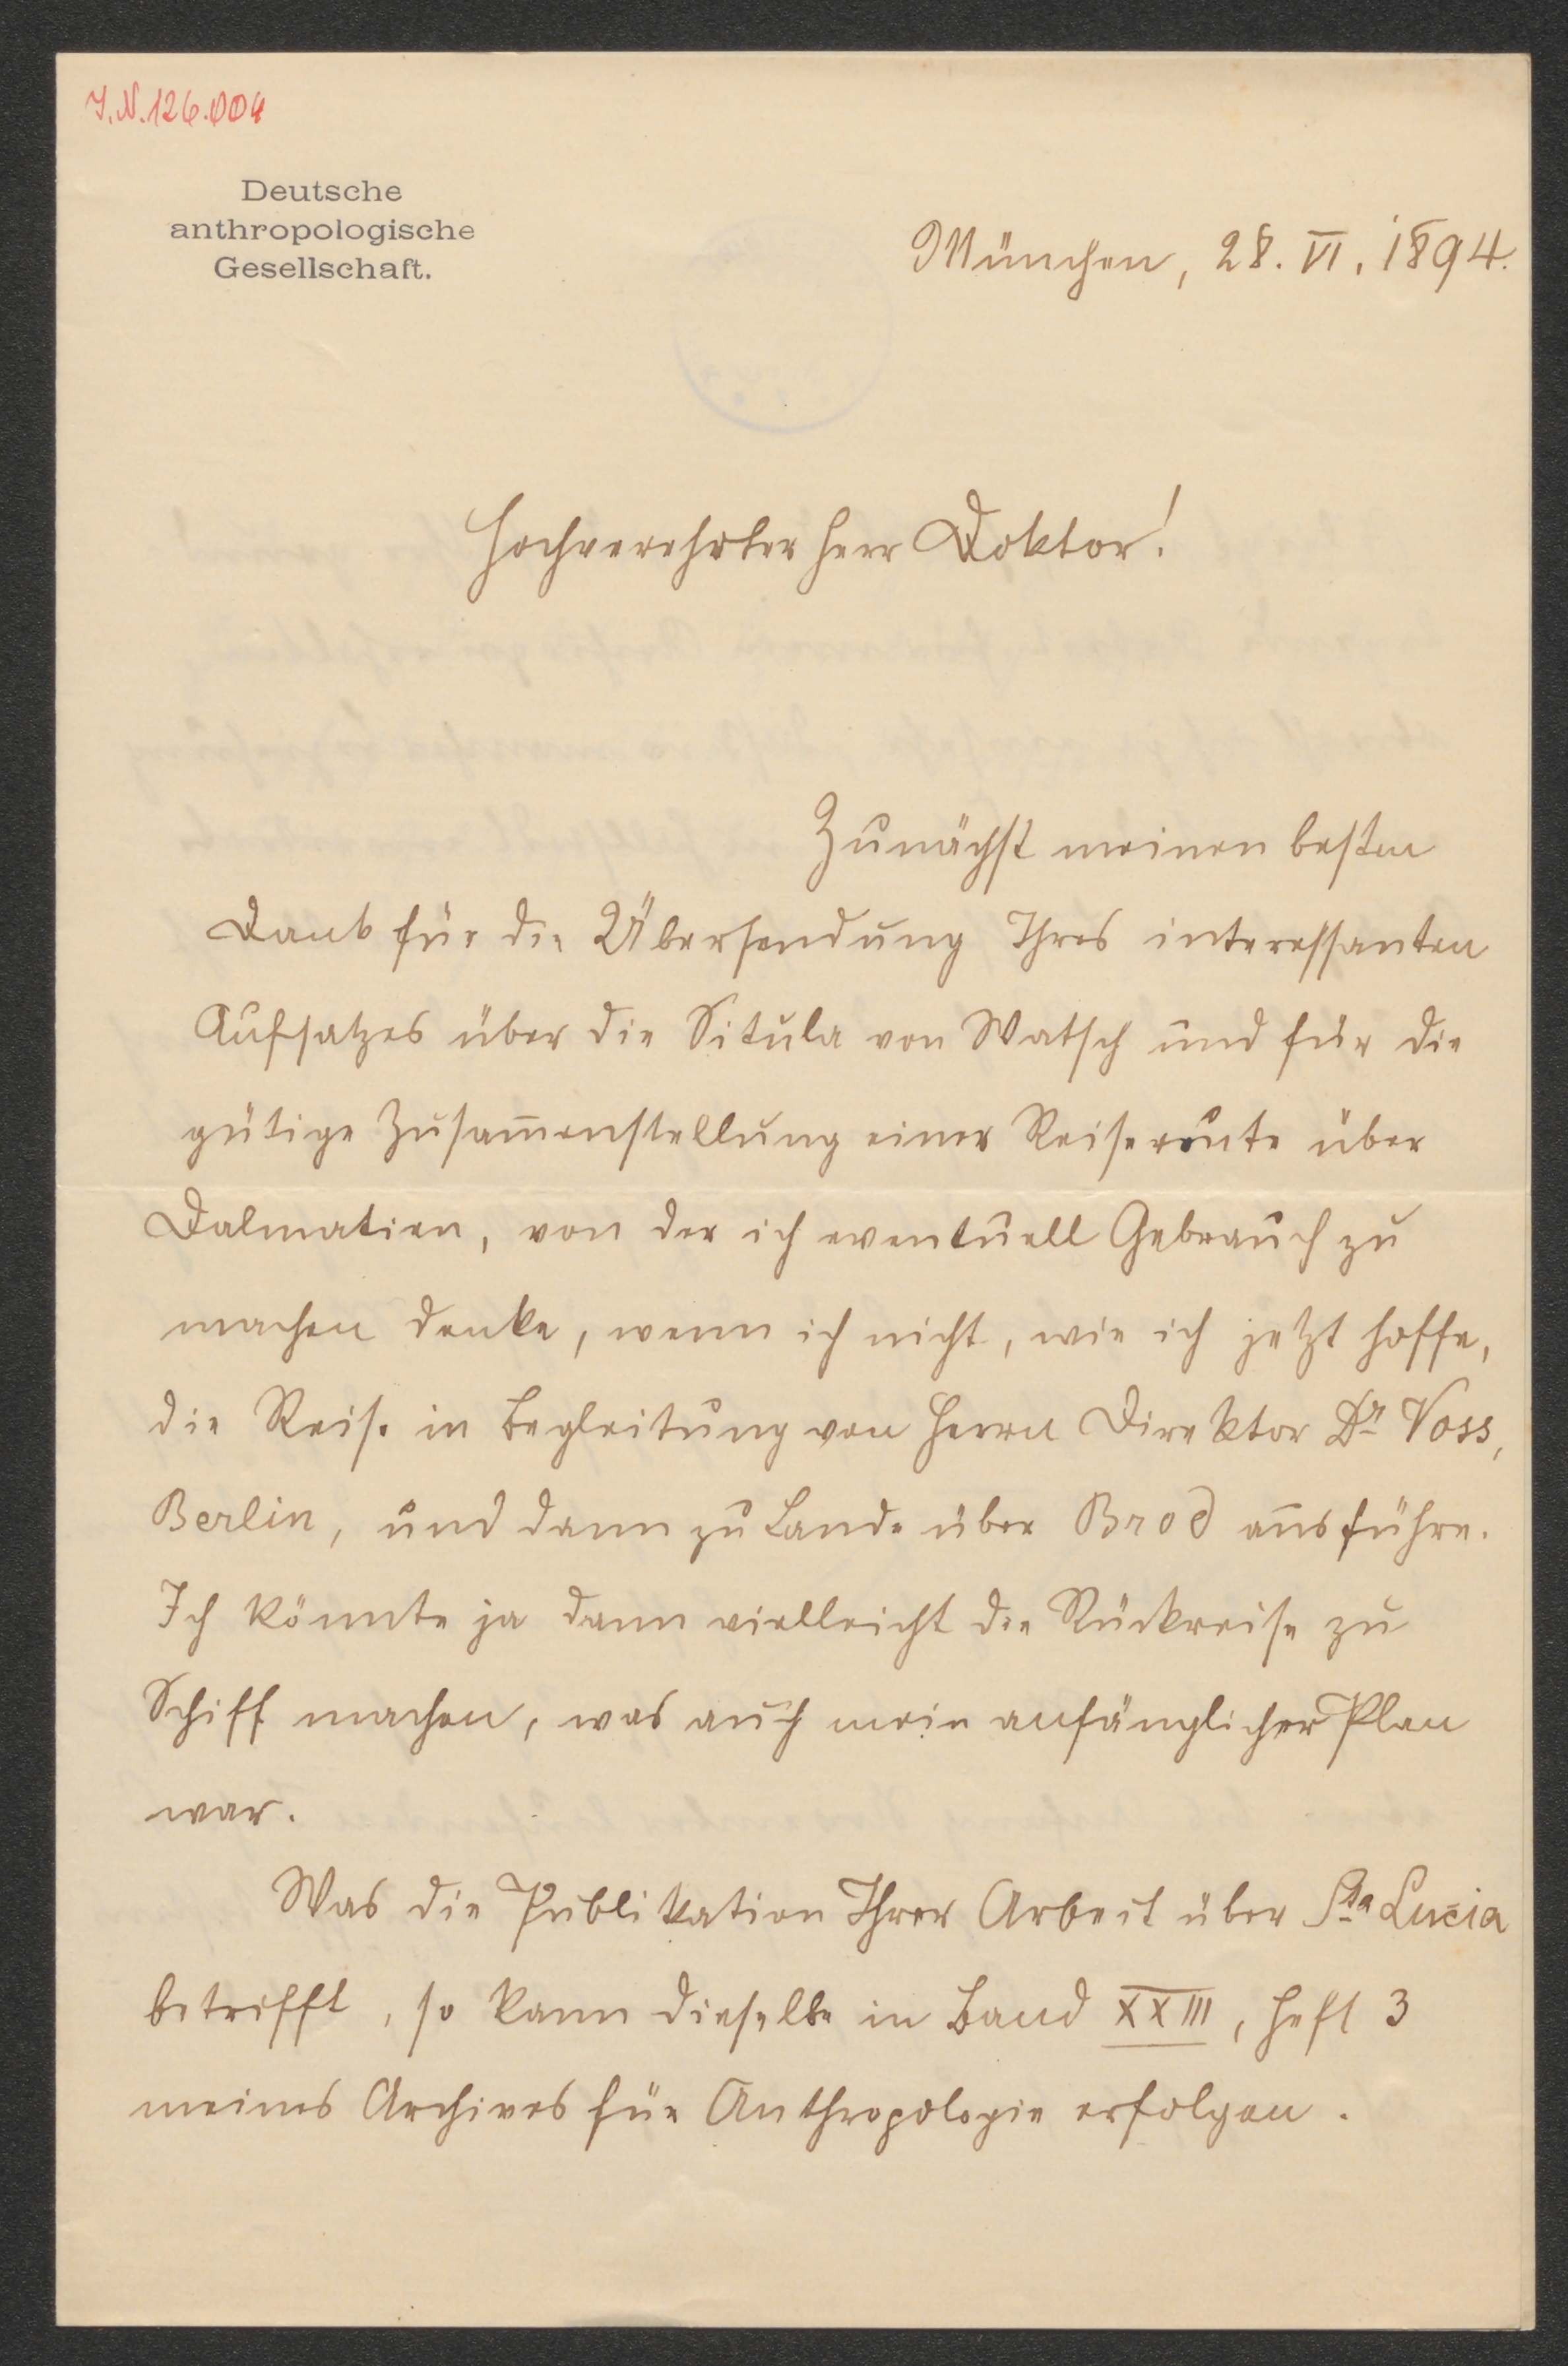 J.N.126.004
Deutsche
anthropologische
Gesellschaft.
München, 28. VI. 1894.
Hochverehrter Herr Doktor!
Zunächst meinen besten
Dank für die Übersendung Ihres interessanten
Aufsatzes über die Situla von Watsch und für die
gütige Zusam̄enstellung einer Reiseroute über
Dalmatien, von der ich eventuell Gebrauch zu
machen denke, wenn ich nicht, wie ich jetzt hoffe,
die Reise in Begleitung von Herrn Direktor Dr Voss,
Berlin, und dann zu Lande über Brod ausführe.
Ich könnte ja dann vielleicht die Rückreise zu
Schiff machen, was auch mein anfänglicher Plan
war.
Was die Publikation Ihrer Arbeit über Sta Lucia
betrifft, so kann dieselbe in Band XXIII, Heft 3
meines Archives für Anthropologie erfolgen.